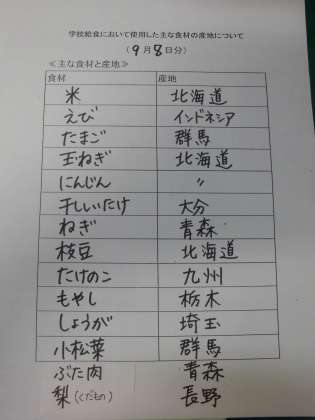 学校給食において使用した主な食材の産地について
(9月8日分)
≪主な食材と産地≫
食材 産地
米 北海道
えび インドネシア
たまご 群馬
玉ねぎ 北海道
にんじん 〃
干ししいたけ 大分
ねぎ 青森
枝豆 北海道
たけのこ 九州
もやし 栃木
しょうが 埼玉
小松菜 群馬
ぶた肉 青森
梨(くだもの) 長野